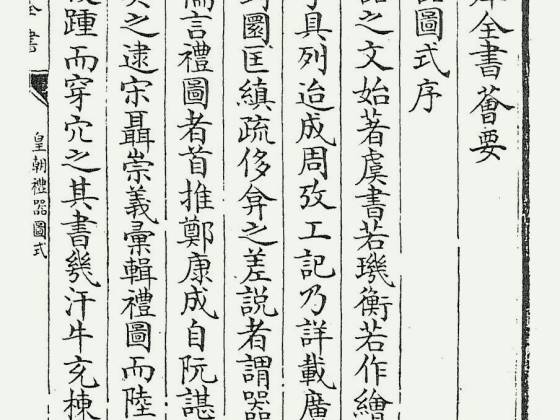 全書薈要
圖式序
之文始著虞書若璣衡若作繪
具列迨成周攷工記乃詳載廣
圜匡縝疏侈弇之差説者謂器
言禮圖者首推鄭康成自阮諶
之逮宋聶崇義彙輯禮圖而陸
踵而穿穴之其書幾汗牛充棟
皇朝禮器圖式
書